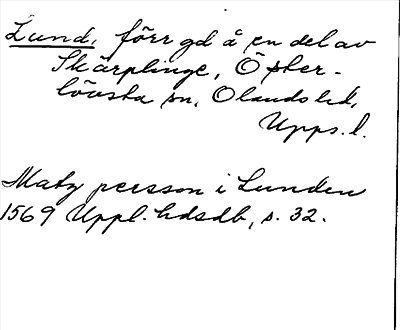 Lund, förr gd å en del av
Skärplinge, Öster-
lövsta sn, Olands hd,
Upps. l.
Matz persson i Lunden
1569 Uppl. hdsdb, s. 32.